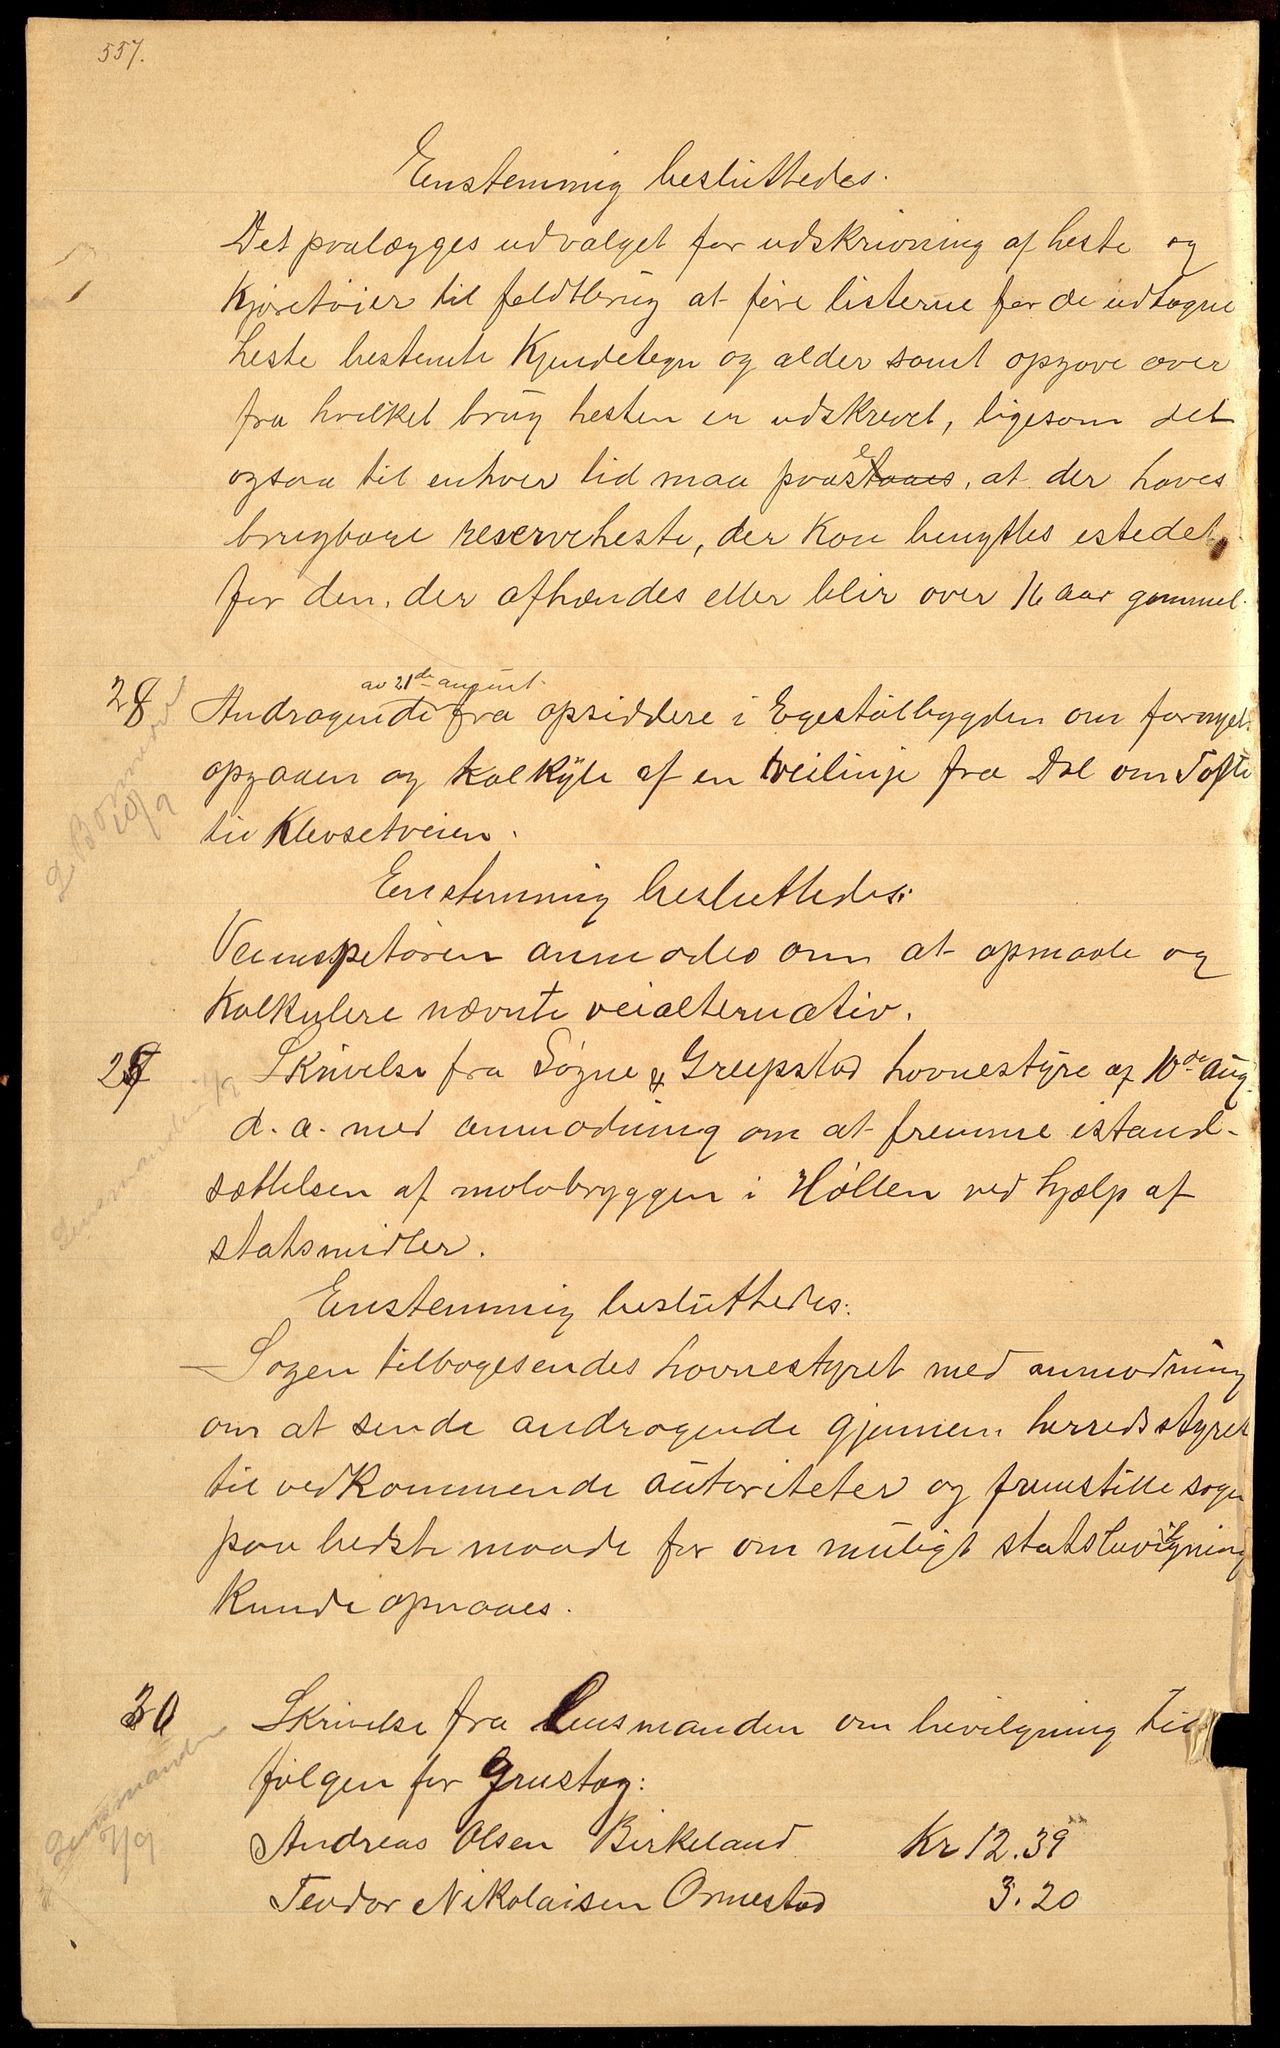 557.
Enstemmig besluttedes.
Det paalægges udvalget for udskrivning af heste og
Kjøretøier til feldtbrug at føre listerne for de udtagne
heste bestemte Kjendetegn og alder samt opgave over
fra hvilket brug hesten er udskrevet, ligesom det
ogsaa til enhver tid maa paasees, at der haves
brugbare reserveheste, der kan benyttes istedet
for den, der afhændes eller blir over 16 aar gammel.
av 21de august.
28 Andragende fra opsiddere i Egestølbygden om fornyet
opgaaen og kalkyle af en veilinje fra Dal om Tofte
til Klevsetveien.
Enstemmig besluttedes:
Veiinspetøren anmodes om at opmaale og
kalkulere nævnte veialternativ.
29 Skrivelse fra Søgne & Greipstad havnestyre af 10de aug.
d. a. med anmodning om at fremme istand-
sættelsen af molobryggen i Høllen ved hjælp af
statsmidler.
Enstemmig besluttedes:
Sagen tilbagesendes havnestyret med anmodning
om at sende andragende gjennem herredsstyret
til vedkommende autoriteter og fremstille sagen
paa bedste maade for om muligt statsbevilgning
kunde opnaaes.
30 Skrivelse fra Lensmanden om bevilgning til
følgen for Grustag:
Andreas Olsen Birkeland Kr 12.39
Teodor Nikolaisen Ormestad 3.20
Lensmanden 7/9